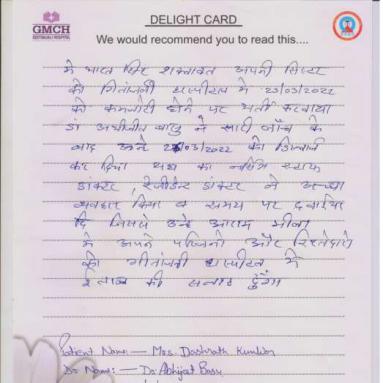 GMCH
GEETANJALI HOSPITAL
DELIGHT CARD
We would recommend you to read this....
मै भारत सिंह शक्तावत अपनी सिस्टर
को गितांजली हास्पीटल मे 23/03/2022
को कमजोरी होने पर भर्ती करवाया
डॉ अभीजीत बासु ने सारी जाँच के
बाद उन्हे 2 /03/2022 को डिस्चार्ज
कर दिया यहा का नर्सिंग स्टाफ
डाक्टर, रेजीडेन्ट डाक्टर ने अच्छा
व्यवहार किया व समय पर दवाईया
दि जिससे उन्हे आराम मीला
मे अपने परिजनो और रिश्तेदारो
को गीतांजली हास्पीटल मे
ईलाज की सलाह दुंगा
Patient Name - Mrs. Dashrath Kunwar
Dr Name:- Dr. Abhijeet Basu